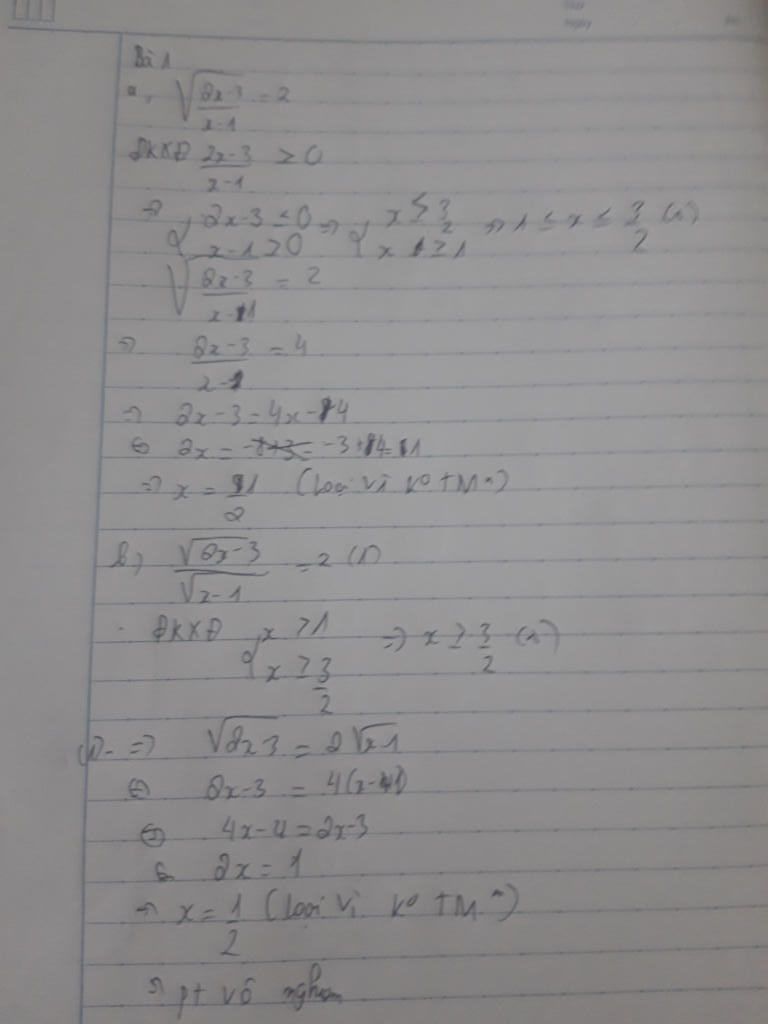 Bài 1
a, √((2x-3)/(x-1)) = 2
ĐKXĐ (2x-3)/(x-1) ≥ 0
=> { 2x-3 ≤ 0 => { x ≤ 3/2 => 1 ≤ x ≤ 3/2 (*)
x-1 > 0 x ≥ 1
√((2x-3)/(x-1)) = 2
=> (2x-3)/(x-1) = 4
=> 2x-3 = 4x-4
<=> 2x = -3+4=1
=> x = 1/2 (loại vì ko TM *)
b) √(2x-3)/√(x-1) = 2 (1)
ĐKXĐ { x > 1 => x ≥ 3/2 (*)
x ≥ 3/2
(1) => √(2x-3) = 2√(x-1)
<=> 2x-3 = 4(x-1)
<=> 4x-4 = 2x-3
<=> 2x = 1
=> x = 1/2 (loại vì ko TM *)
=> pt vô nghiệm